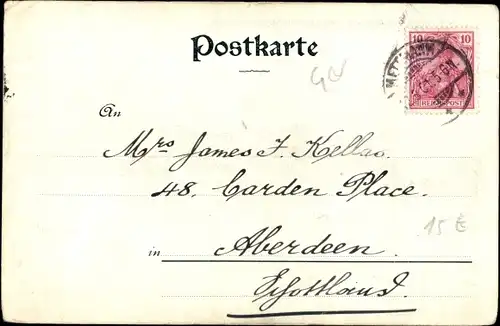 Postkarte
10 10
METTMANN
REICHSPOST
An
Mrs James F. Kellas.
48. Carden Place.
in Aberdeen.
Schottland.
15 €